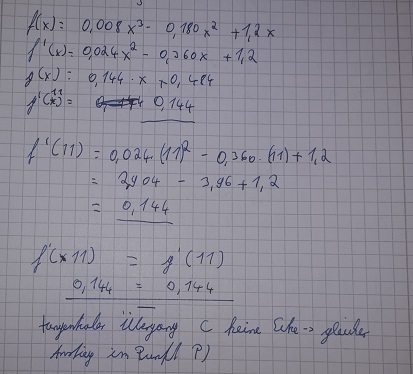 f(x): 0,008x³ - 0,180x² + 1,2x
f'(x)= 0,024x² - 0,360x + 1,2
g(x): 0,144 · x + 0,484
g'(11)= 0,144
f'(11) = 0,024 · (11)² - 0,360 · (11) + 1,2
= 2,904 - 3,96 + 1,2
= 0,144
f'(11) = g'(11)
0,144 = 0,144
tangentialer Übergang ( keine Ecke → gleicher
Anstieg im Punkt P)